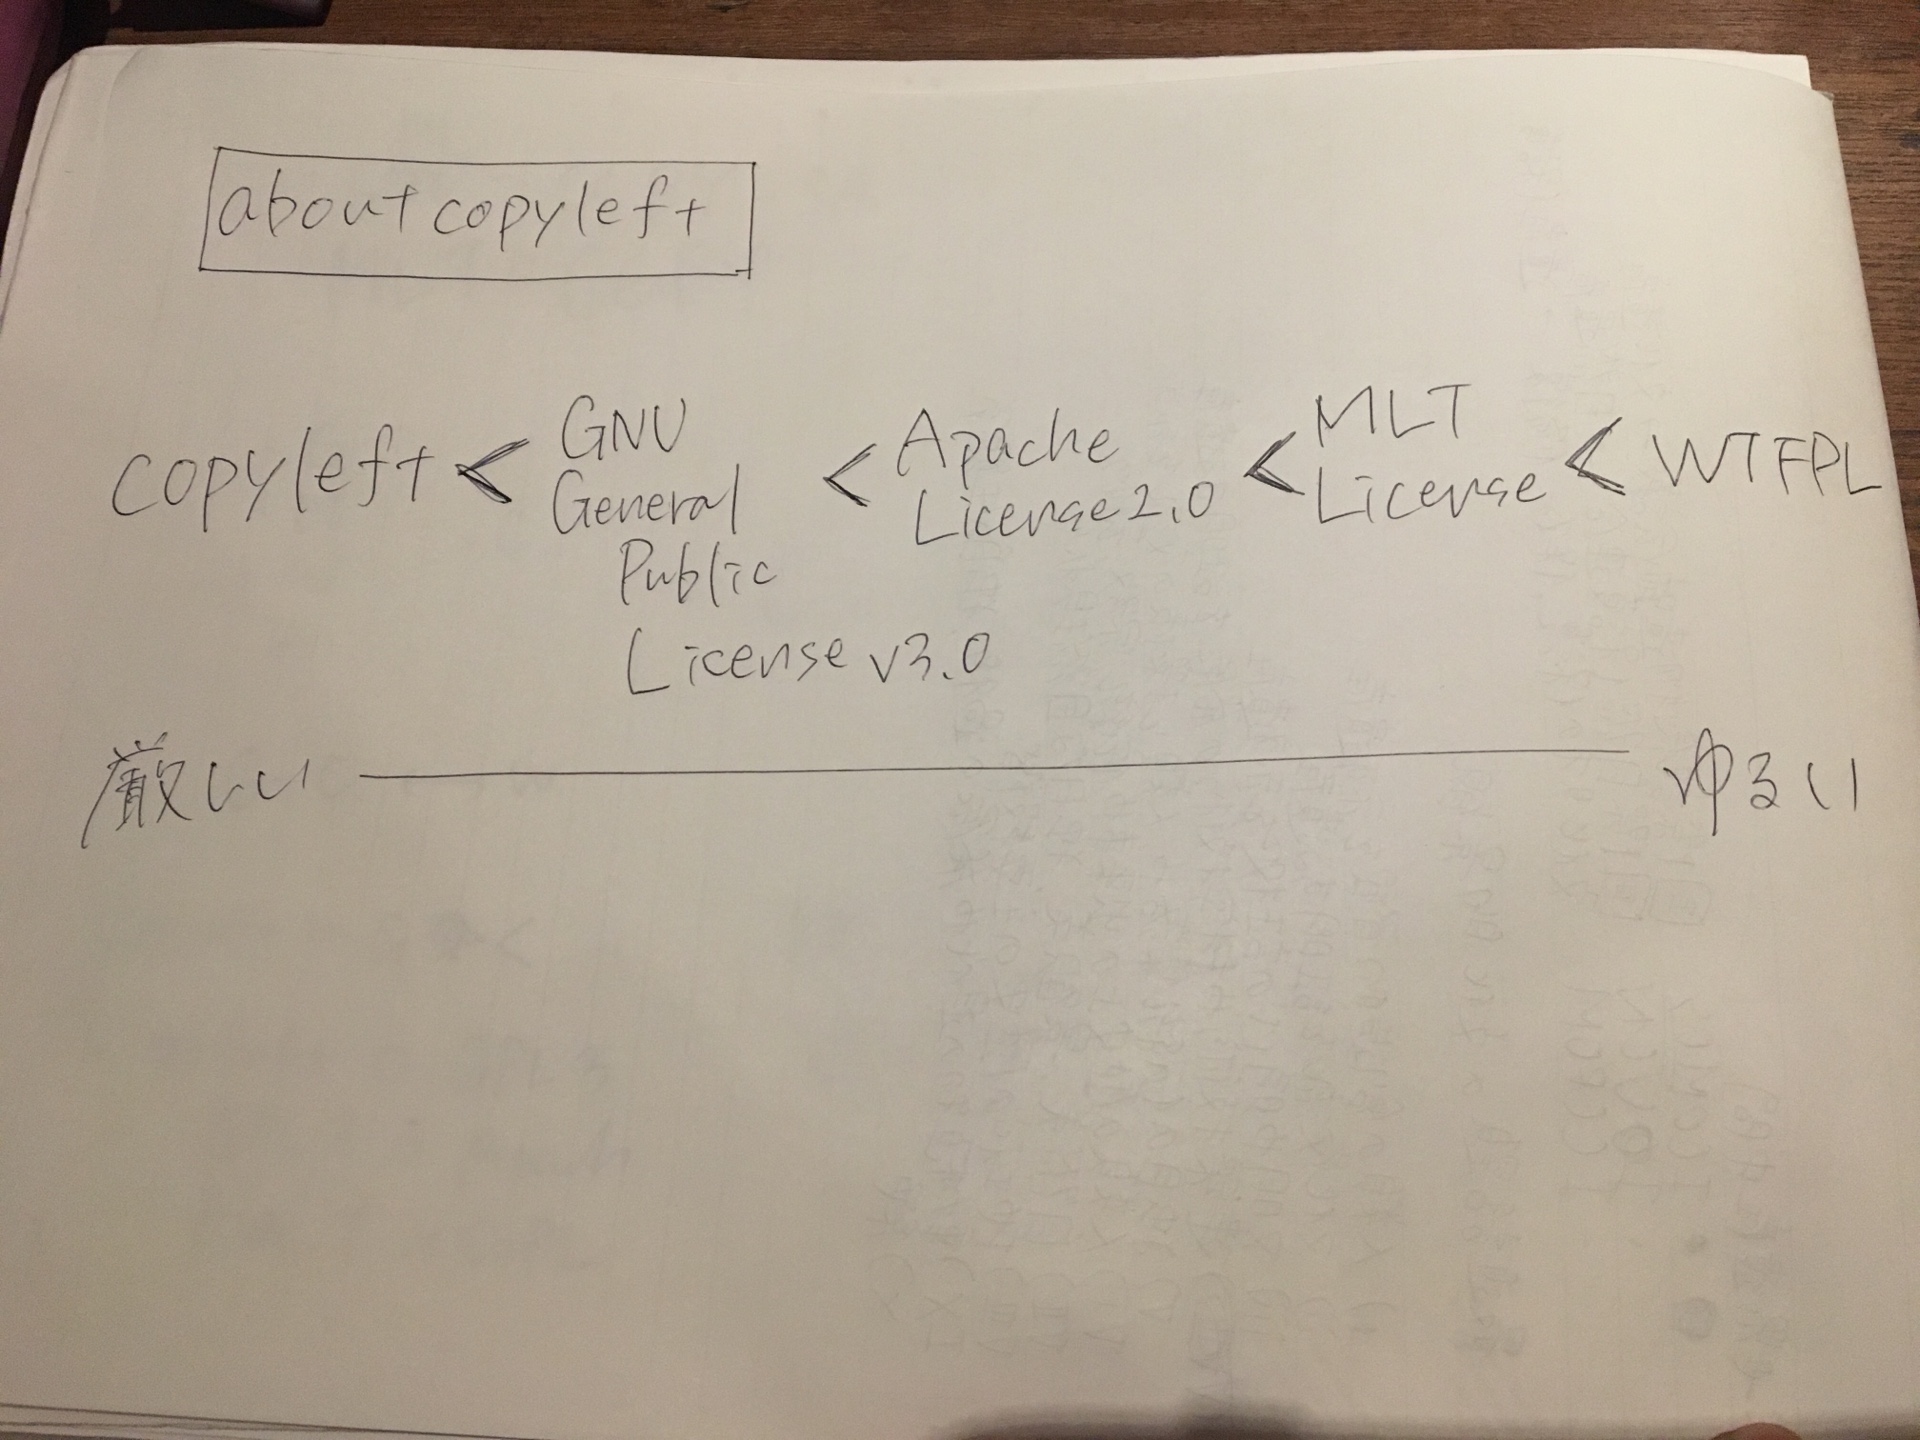 about copyleft
copyleft < GNU General Public License v3.0 < Apache License 2.0 < MLT License < WTFPL
厳しい ゆるい